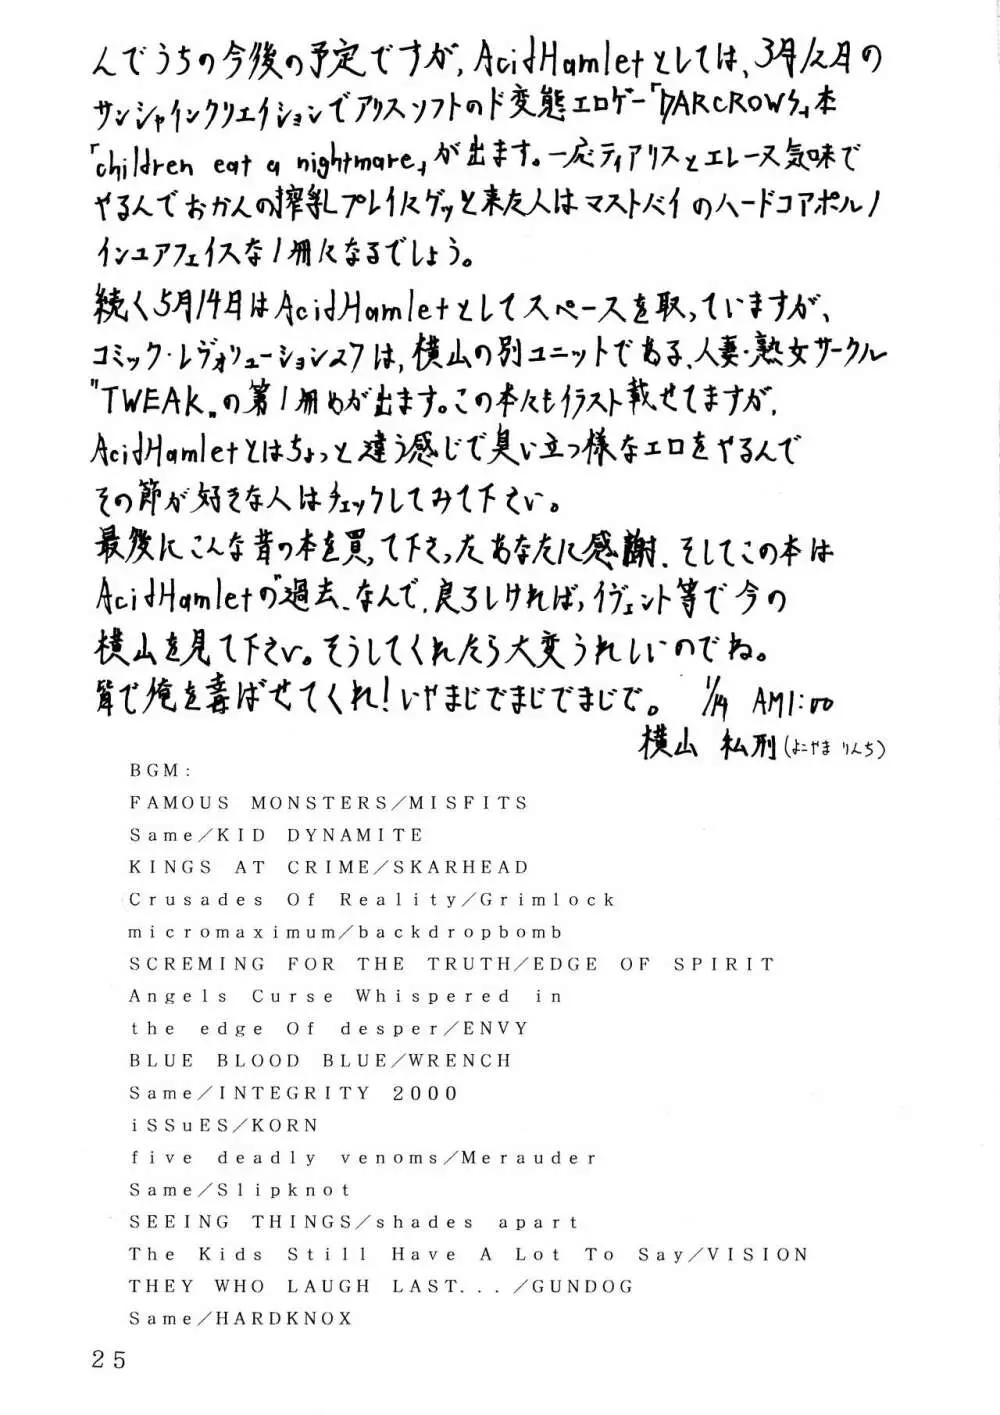 んでうちの今後の予定ですが、AcidHamletとしては、3月12日の
サンシャインクリエイションでアリスソフトのド変態エロゲー「DARCROWS」本
「children eat a nightmare」が出ます。一応ティアリスとエレーヌ気味で
やるんでおかんの搾乳プレイにグッと来た人はマストバイのハードコアポルノ
インユアフェイスな1冊になるでしょう。
続く5月14日はAcidHamletとしてスペースを取っていますが、
コミック・レヴォリューション27は、横山の別ユニットである、人妻・熟女サークル
"TWEAK„の第1冊めが出ます。この本々もイラスト載せてますが、
AcidHamletとはちょっと違う感じで臭い立つ様なエロをやるんで
その節が好きな人はチェックしてみて下さい。
最後にこんな昔の本を買って下さったあなたに感謝、そしてこの本は
AcidHamletの"過去、なんで、良ろしければ、イヴェント等で今の
横山を見て下さい。そうしてくれたら大変うれしいのでね。
皆で俺を喜ばせてくれ!いやまじでまじでまじで。 1/14 AM1:00
横山 私刑(よこやま りんち)
BGM:
FAMOUS MONSTERS/MISFITS
Same/KID DYNAMITE
KINGS AT CRIME/SKARHEAD
Crusades Of Reality/Grimlock
micromaximum/backdropbomb
SCREMING FOR THE TRUTH/EDGE OF SPIRIT
Angels Curse Whispered in
the edge Of desper/ENVY
BLUE BLOOD BLUE/WRENCH
Same/INTEGRITY 2000
iSSuES/KORN
five deadly venoms/Merauder
Same/Slipknot
SEEING THINGS/shades apart
The Kids Still Have A Lot To Say/VISION
THEY WHO LAUGH LAST.../GUNDOG
Same/HARDKNOX
25